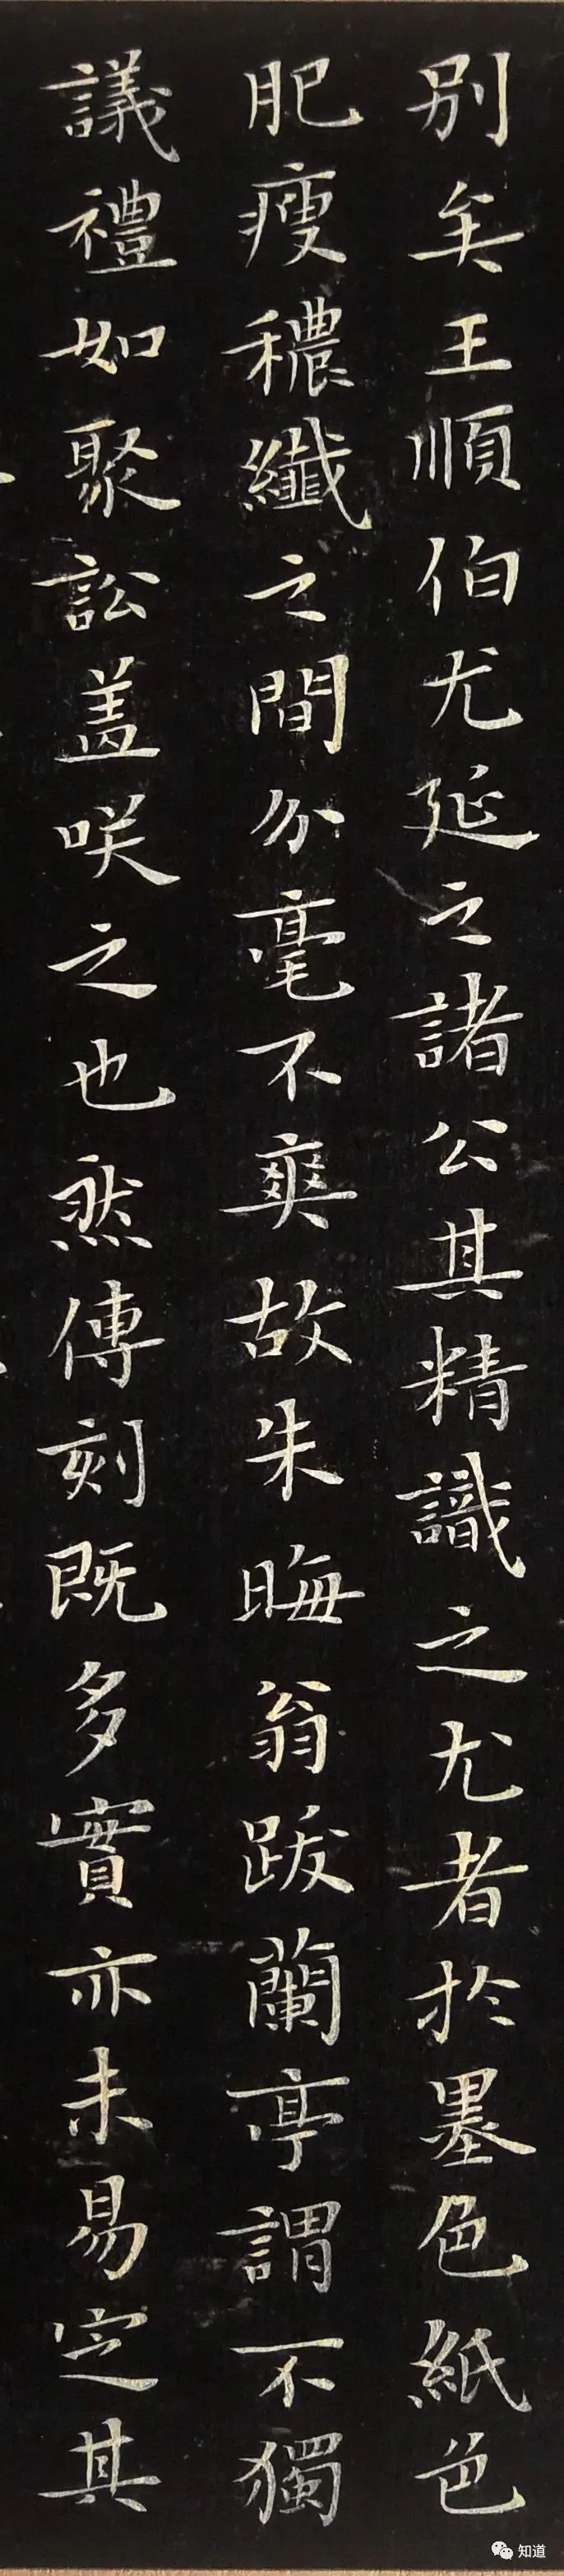 别矣王順伯尤延之諸公其精識之尤者於墨色紙色
肥瘦穠纖之間分毫不爽故朱晦翁跋蘭亭謂不獨
議禮如聚訟盖咲之也然傳刻既多實亦未易定其
知道